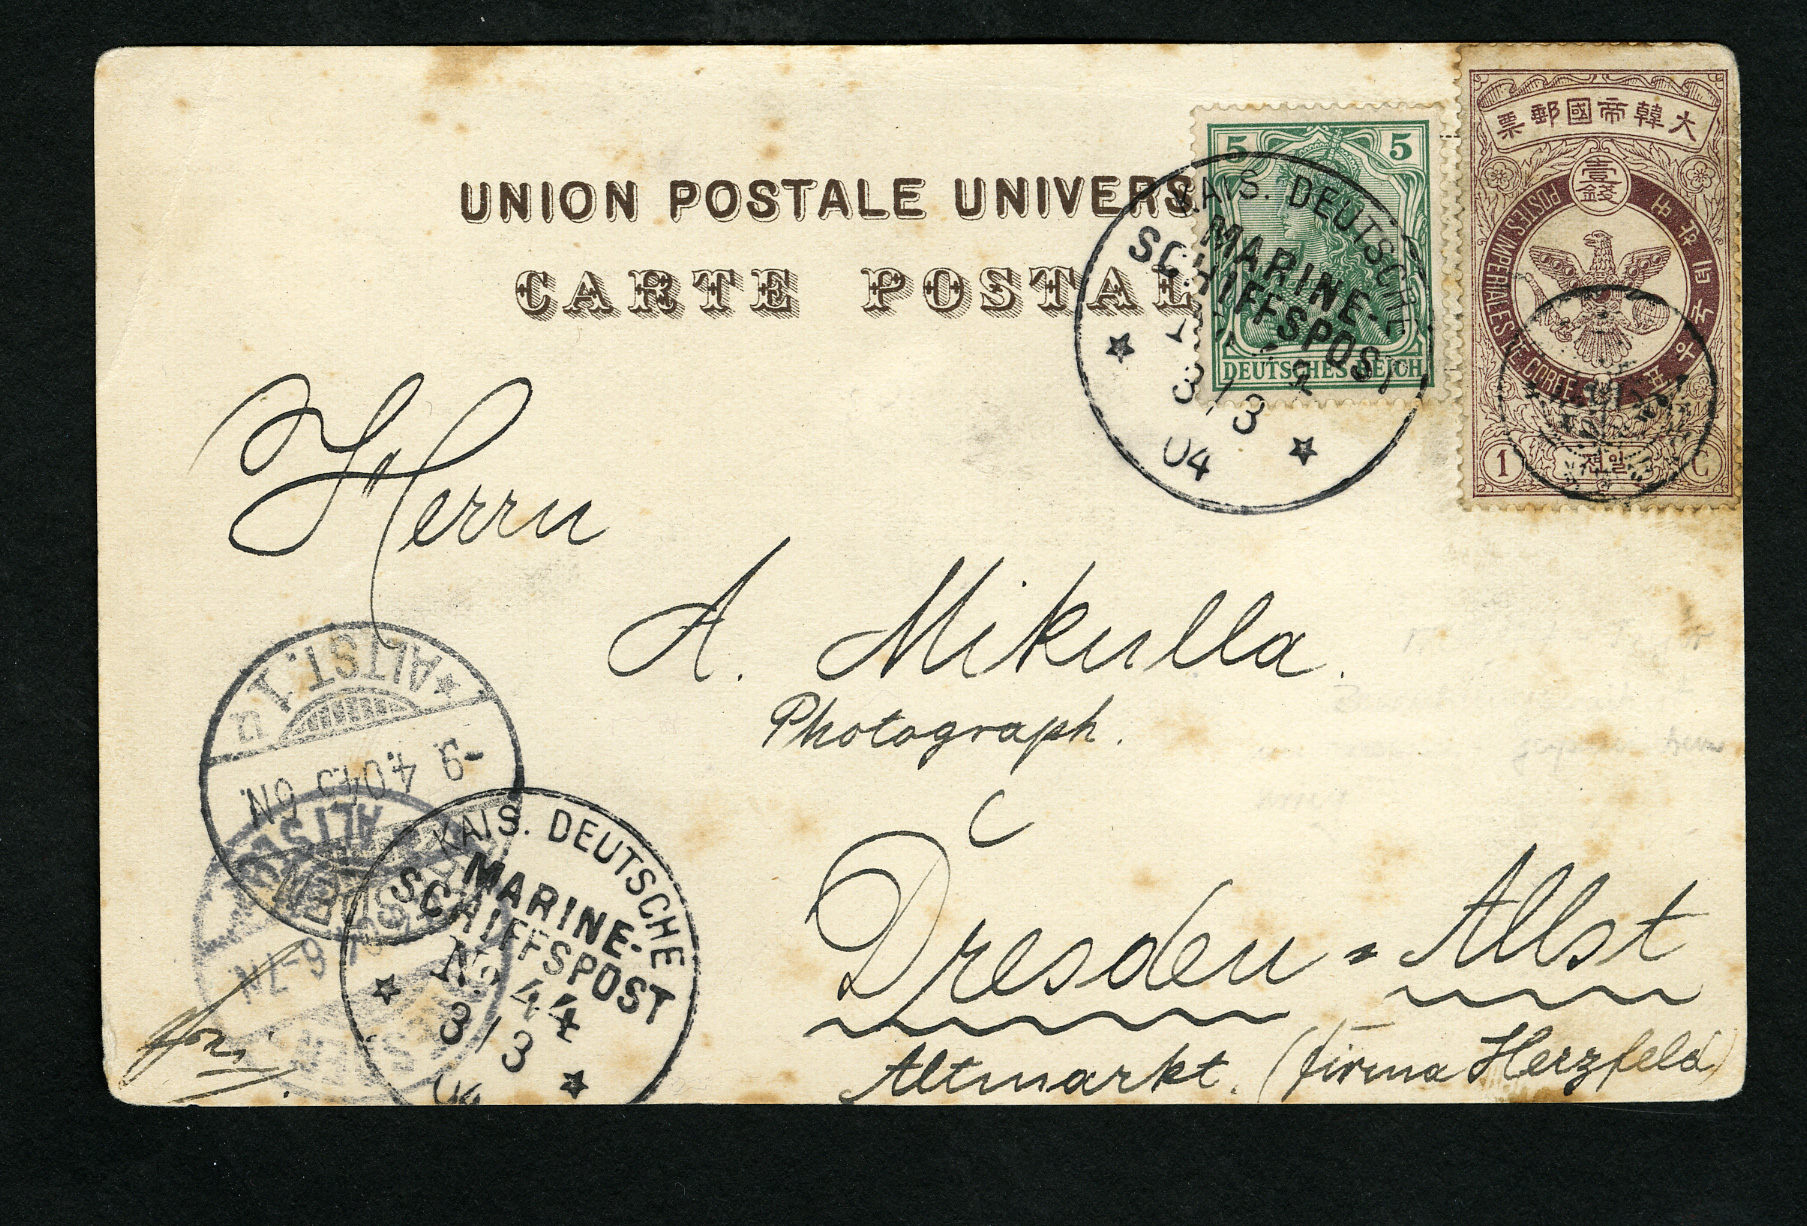 UNION POSTALE UNIVERS
CARTE POSTAL
5 5
DEUTSCHES REICH
大韓帝國郵票
壹錢
POSTES IMPERIALES DE COREE
1 C
KAIS. DEUTSCHE
MARINE-
SCHIFFSPOST
3/3
04
Herrn
A. Mikulla.
Photograph.
Dresden = Altst
Altmarkt. (Firma Herzfeld)
ALTST. 1
4.04. 6-
ALTST.
6-7N
KAIS. DEUTSCHE
MARINE-
SCHIFFSPOST
No 44
3/3
04